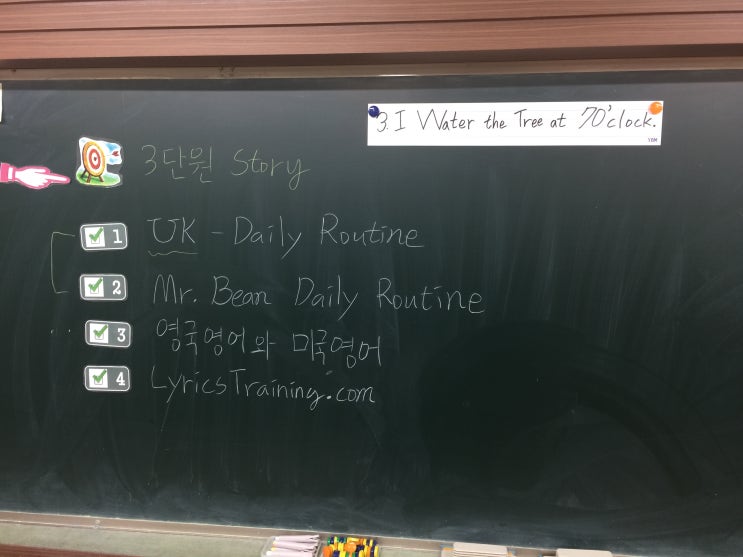 3. I Water the Tree at 7O'clock.
YBM
3단원 Story
1 UK - Daily Routine
2 Mr. Bean Daily Routine
3 영국영어와 미국영어
4 LyricsTraining.com